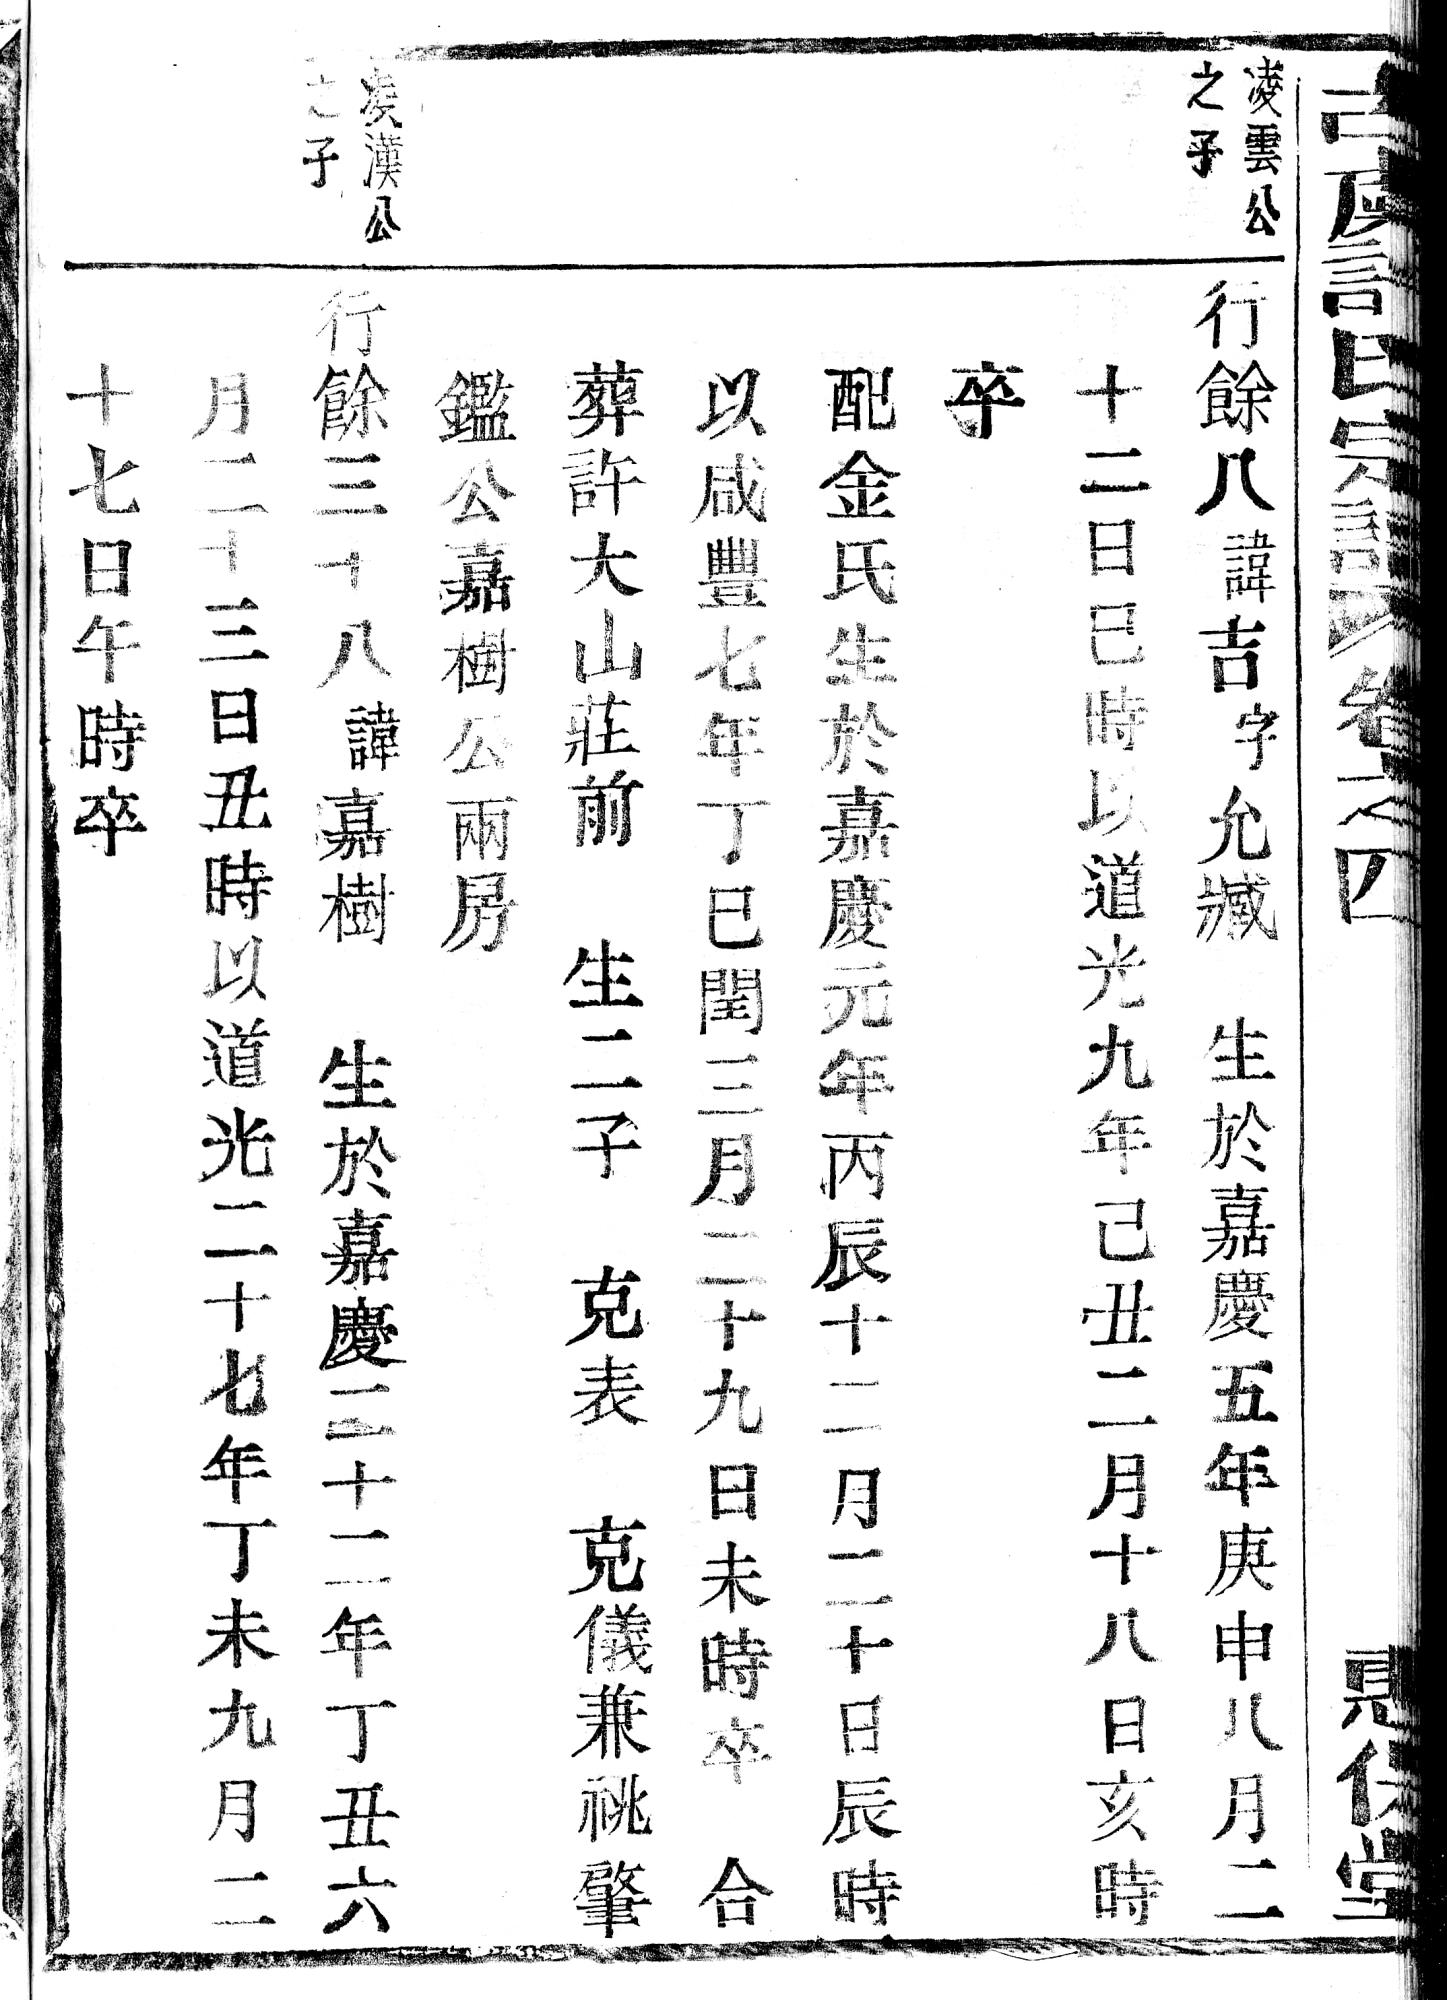 古虞許氏宗譜卷之四
惠保堂
凌雲公
之子
行餘八諱吉字允臧 生於嘉慶五年庚申八月二
十二日巳時以道光九年己丑二月十八日亥時
卒
配金氏生於嘉慶元年丙辰十二月二十日辰時
以咸豐七年丁巳閏三月二十九日未時卒 合
葬許大山莊前 生二子 克表 克儀兼祧肇
鑑公嘉樹公兩房
凌漢公
之子
行餘三十八諱嘉樹 生於嘉慶二十二年丁丑六
月二十三日丑時以道光二十七年丁未九月二
十七日午時卒